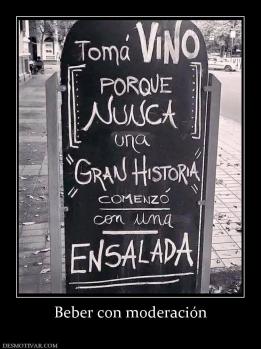 Tomá VINO
PORQUE
NUNCA
una
"GRAN HISTORIA"
COMENZÓ
con una
ENSALADA
Beber con moderación
DESMOTIVAR.COM